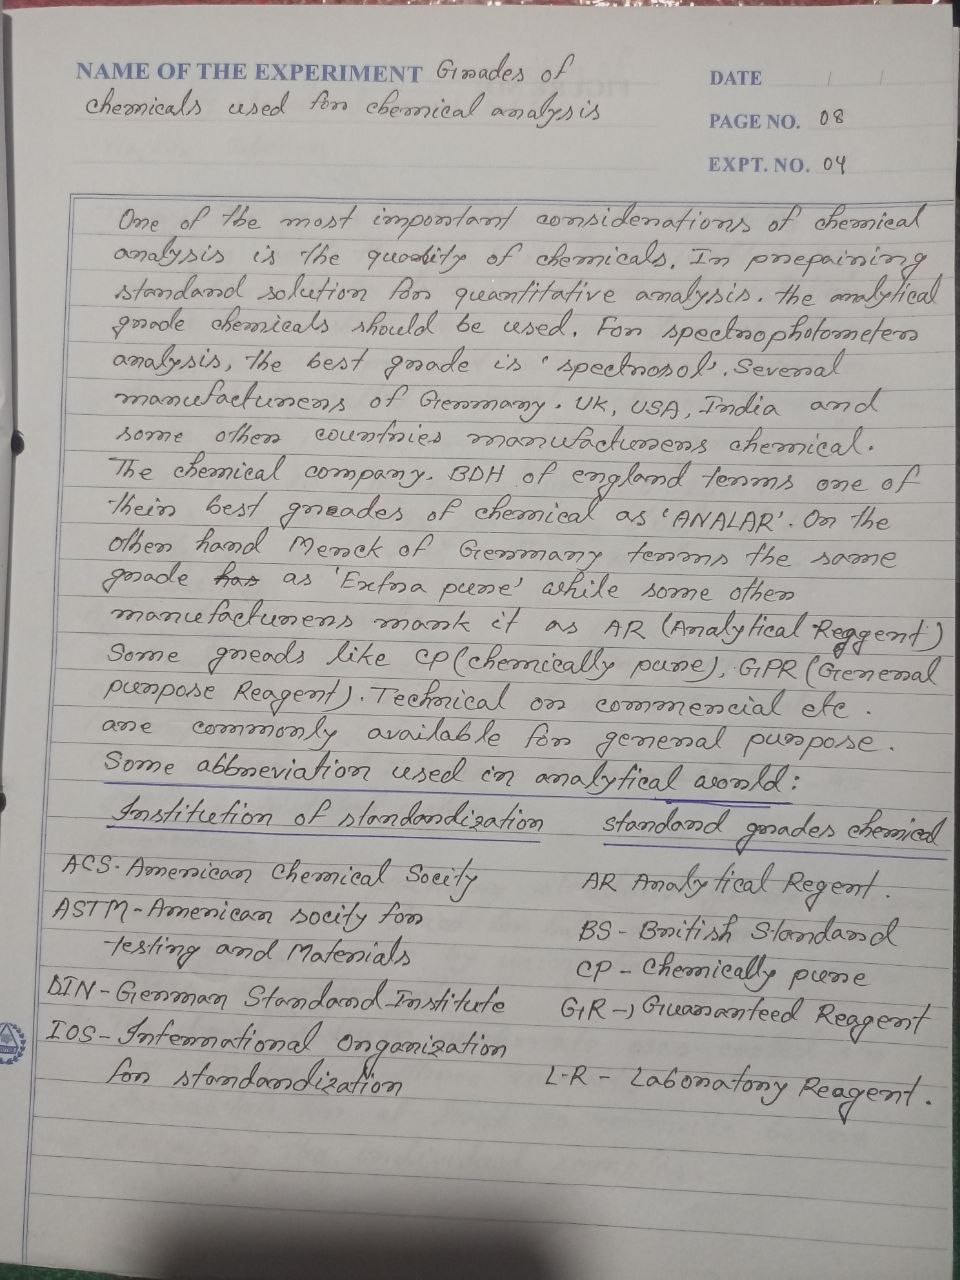 NAME OF THE EXPERIMENT Grades of
chemicals used for chemical analysis
DATE / /
PAGE NO. 08
EXPT. NO. 04
One of the most important considerations of chemical
analysis is the quality of chemicals. In prepaining
standard solution for quantitative analysis. the analytical
grade chemicals should be used. For spectrophotometer
analysis, the best grade is 'spectrosol'. Several
manufacturers of Germany. UK, USA, India and
some other countries manufacturers chemical.
The chemical company. BDH of england terms one of
their best greades of chemical as 'ANALAR'. On the
other hand Merck of Germany terms the same
grade has as 'Extra pure' while some other
manufacturers mark it as AR (Analytical Reggent)
Some greads like CP (chemically pure), GPR (General
purpose Reagent). Technical or commercial etc.
are commonly available for general purpose.
Some abbreviation used in analytical world:
Institution of standardization standard grades chemical
ACS- American Chemical Socity AR Analytical Regent.
ASTM - American socity for
testing and Materials
BS - British Standard
CP - Chemically pure
DIN - German Standard Institute
GR -> Guaranteed Reagent
IOS - International Organization
for standardization
L-R - Laboratory Reagent.